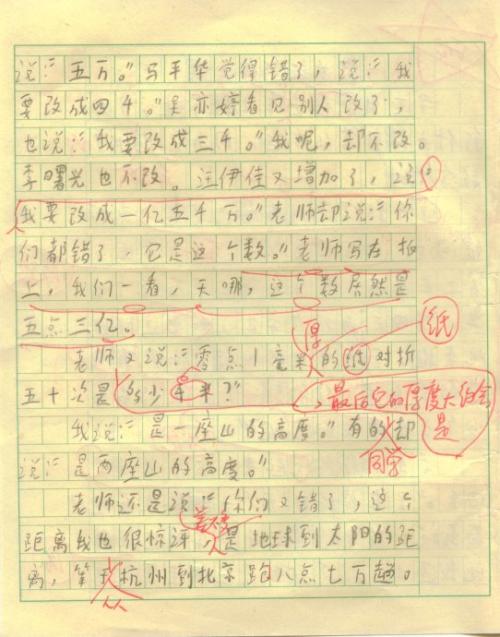 说：“五万。”马平华觉得错了，说：“我
要改成四千。”吴亦婷看见别人改了，
也说：“我要改成三千。”我呢，却不改。
李曙光也不改。汪伊佳又增加了，说：
“我要改成一亿五千万。”老师却说：“你
们都错了，它是这个数。”老师写在板
上，我们一看，天哪，这个数居然是
五点三亿。
厚
纸
老师又说：“零点1毫米的纸对折
五十次是多少毫米？”
，最后它的厚度大约会
是
我说：“是一座山的高度。”有的却
同学
说：“是两座山的高度。”
老师还是说：“你们又错了，这个
距离我也很惊讶，是地球到太阳的距
离，第 杭州到北京跑八点七万趟。
从